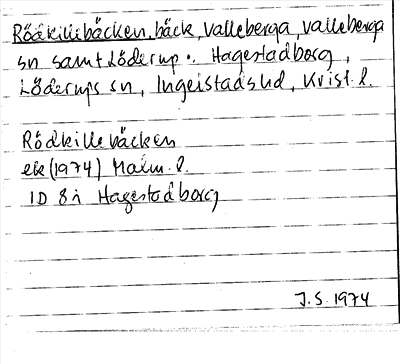 Rödkillebäcken, bäck, Valleberga, Valleberga
sn samt Löderup o. Hagestadborg,
Löderups sn, Ingelstads hd, Krist. l.
Rödkillebäcken
ek (1974) Malm. l.
1D 8i Hagestadborg
J.S. 1974